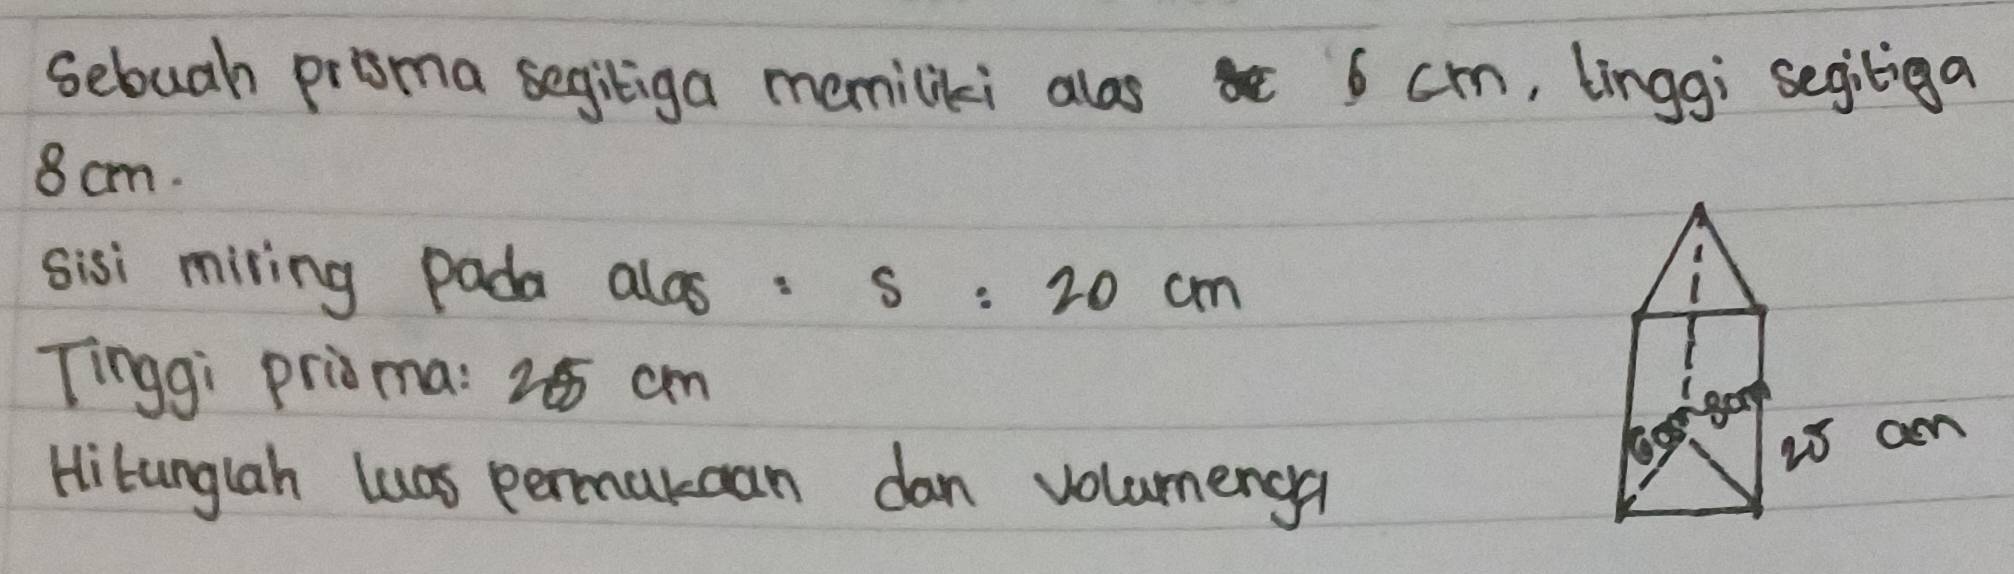 Sebuah prisma segitiga memiliki alas 6 cm, tinggi segitiga
8 cm.
Sisi miring pada alas : s : 20 cm
Tinggi prisma: 25 cm
Hitunglah luas permukaan dan volumenya
6cm 8cm
25 cm